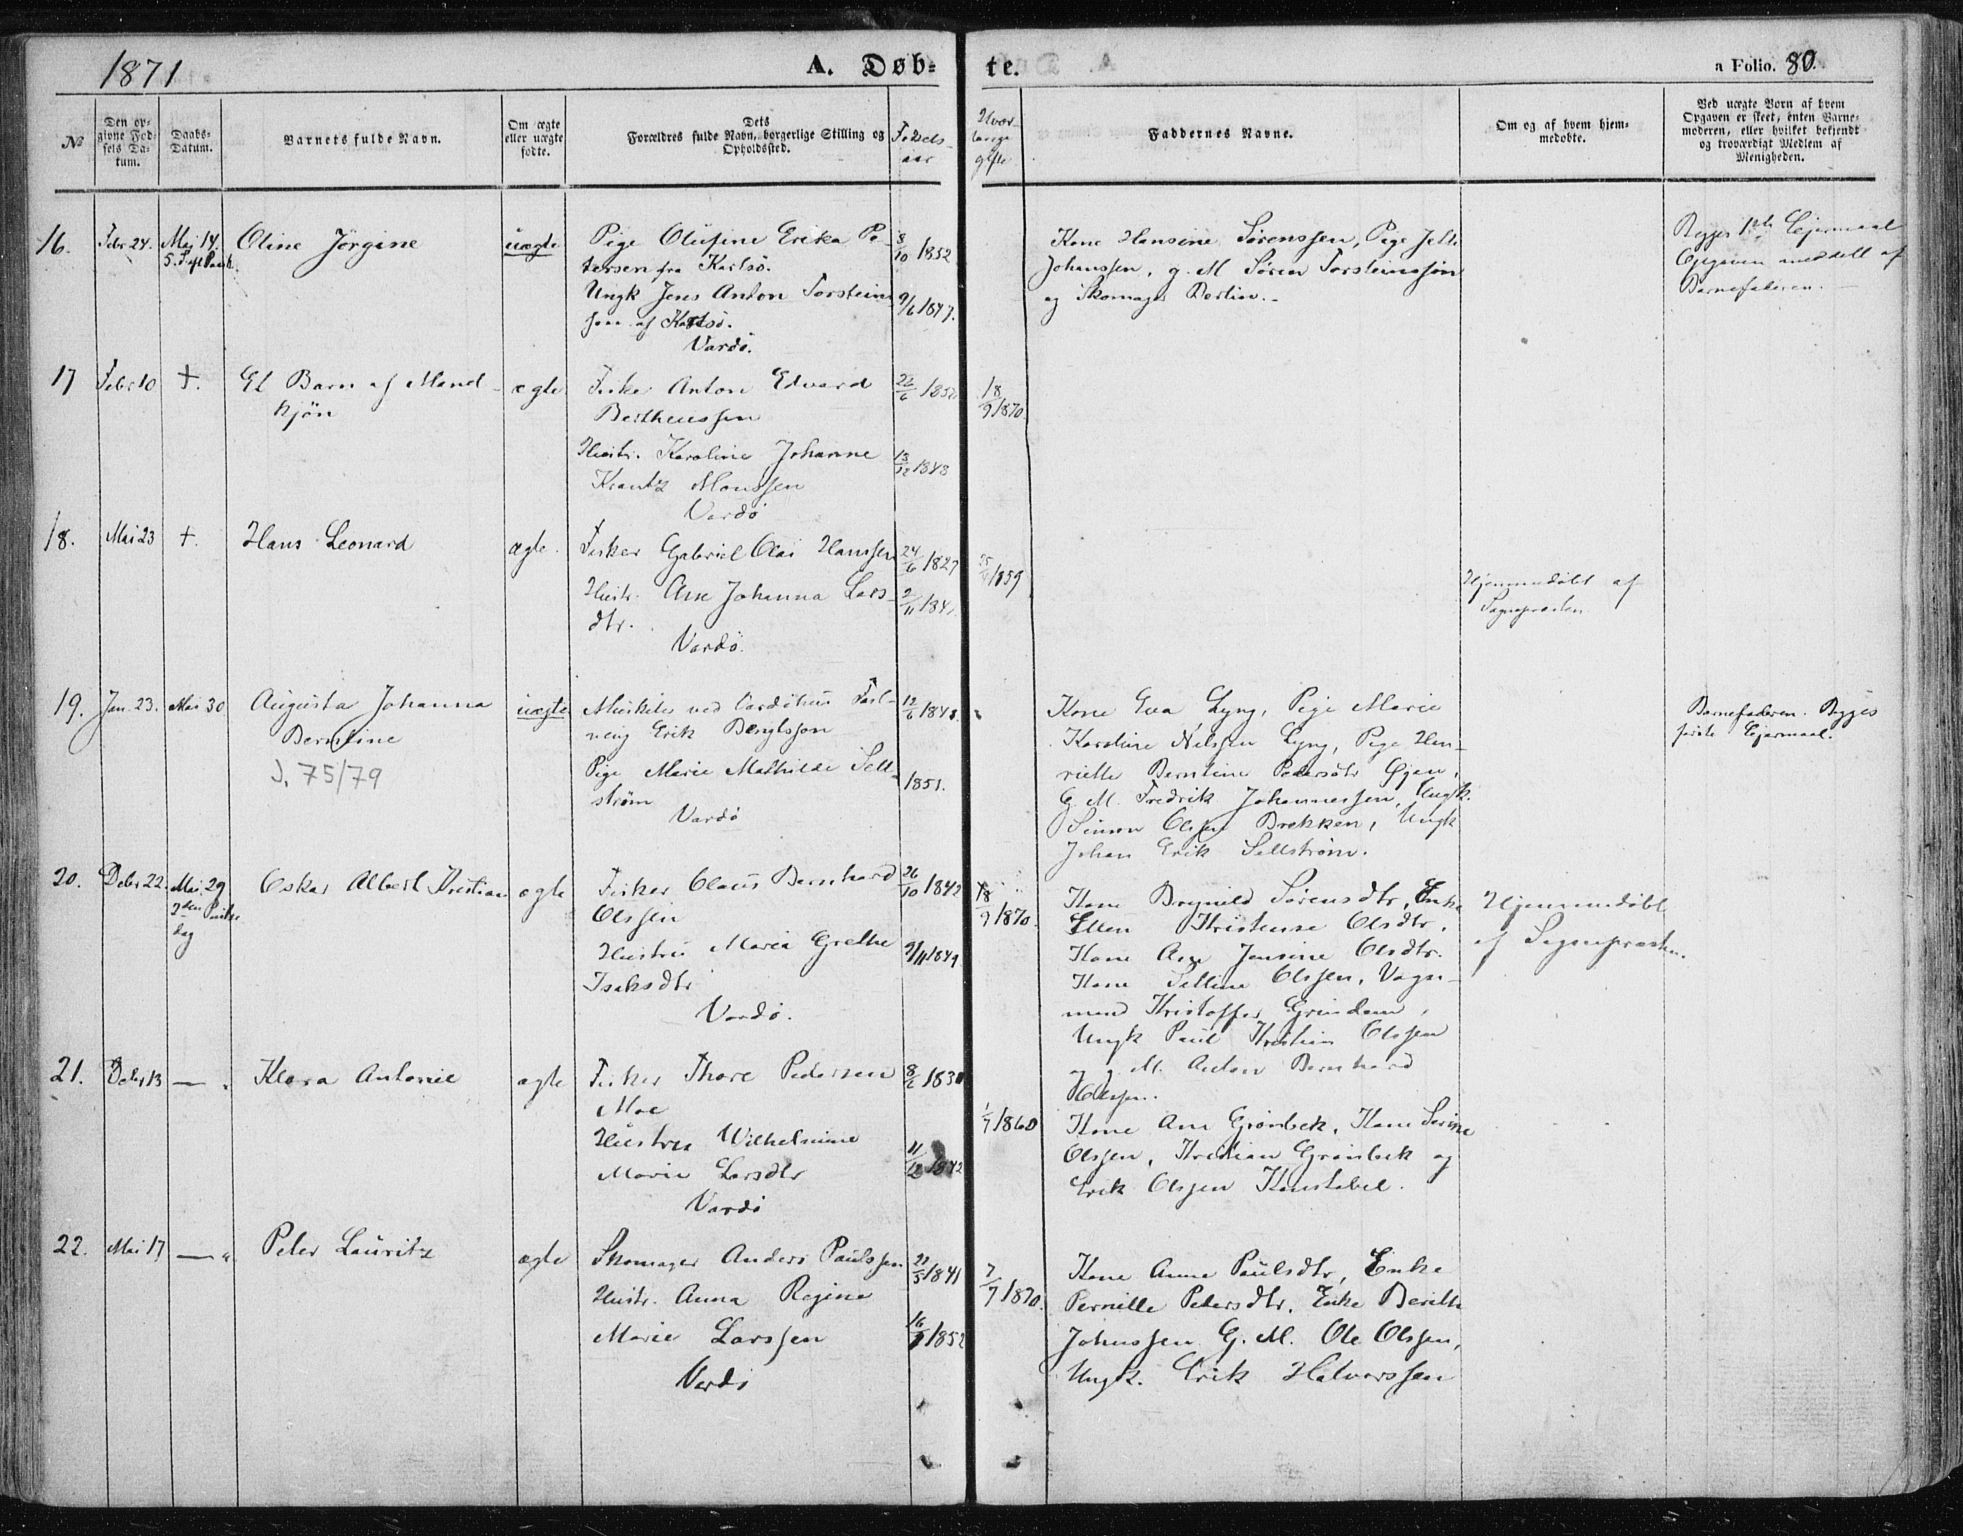 1871
A. Døb-
te.
a Folio. 80.
№
Den op-
givne Fød-
sels Da-
tum.
Daabs-
Datum.
Barnets fulde Navn.
Om ægte
eller uægte
fødte.
Dets
Forældres fulde Navn, borgerlige Stilling og
Opholdssted.
Fødsels-
aar
Hvor-
længe
gifte
Faddernes Navne.
Om og af hvem hjem-
medøbte.
Ved uægte Børn af hvem
Opgaven er skeet, enten Barne-
moderen, eller hvilket bekjendt
og troværdigt Medlem af
Menigheden.
16.
Febr 24.
Mai 14.
Oline Jørgine
uægte
Pige Olufine Erika Pe-
tersen fra Karlsø.
Ungk Jens Anton Torstein
sen af Karlsø.
Vardø.
8/10 1852
9/6 1847.
Kone Hansine Sørenssen, Pige
Johanssen, g. M. Sören Torsteinssøn
og Skomager
Begges 1ste Lejermaal
Opgaven meddelt af
Barnefaderen.
17
Febr 10
+.
Et Barn af Mand-
kjøn
ægte
Fisker Anton Edvard
Bertheussen
Hustr. Karoline Johanne
Krantz Monssen
Vardø
13/12 1848
18/9 1870.
18.
Mai 23
+.
Hans Leonard
ægte.
Fisker Gabriel Olai Hanssen
Hustr. Ane Johanna Lars-
dtr.
Vardø.
24/6 1827
1859
Hjemmedøbt af
Sognepresten
19.
Jan. 23.
Mai 30
Augusta Johanna
Berntine
J. 75/79
uægte
Muskeler ved Vardøhus Fæst-
ning Erik Bengtsson
Pige Marie Mathilde Sell-
strøm
Vardø
12/6 1848
1851.
Kone Eva Lyng, Pige Marie
Karoline Nilssen Lyng, Pige Hen-
riette Berntine Pedersdtr Øjen,
G. M. Fredrik Johannessen, Ungk.
Simon Olssen Brekken, Ungk
Johan Erik Sellstrøm.
Barnefaderen. Begges
første Lejermaal.
20.
Debr 22.
Mai 29
2den Pintse
dag
Oskar Albert Kristian
ægte
Fisker Olaus Bernhard
Olssen
Hustru Maria Grethe
Isaksdtr
Vardø.
26/10 1842
9/11 1849
18/9 1870.
Kone Brynild Sørensdtr, Enke
Ellen Kristense Olsdtr.
Kone Ane Jensine Olsdtr.
Kone Olssen, Vogn-
mand Kristoffer Grindem,
Ungk Paul Kristian Olssen
og g. M. Anton Bernhard
Olssen.
Hjemmedøbt
af Sognepresten.
21.
Debr 13
— "
Klara Antonie
ægte
Fisker Thore Pedersen
Moe
Hustru Wilhelmine
Marie Larsdtr
Vardø
11/12 1842
1/7 1860
Kone Ane Grønbek, Kone Serine
Olssen, Kristian Grønbek og
Erik Olssen Konstabel.
22.
Mai 17
— "
Peter Lauritz
ægte
Skomager Anders Paulssen
Hustr. Anna Regine
Marie Larssen
Vardø
1841
1852
7/7 1870.
Kone Anna Paulsdtr, Enke
Pernille Petersdtr, Enke Berith
Johnssen G. M. Ole Olssen,
Ungk. Erik Halvorssen